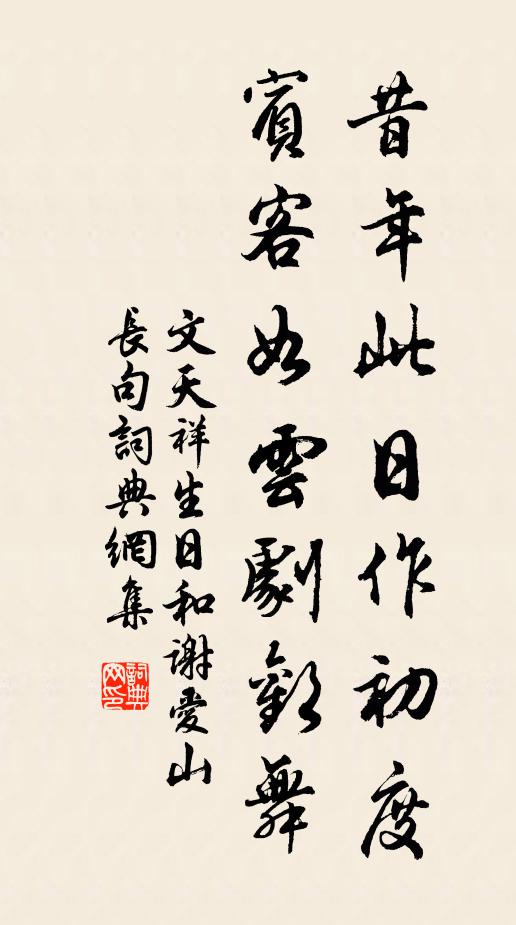 昔年此日作初度
賓客如雲劇歡舞
文天祥生日和謝愛山
長句詞典網集
詞典
网印